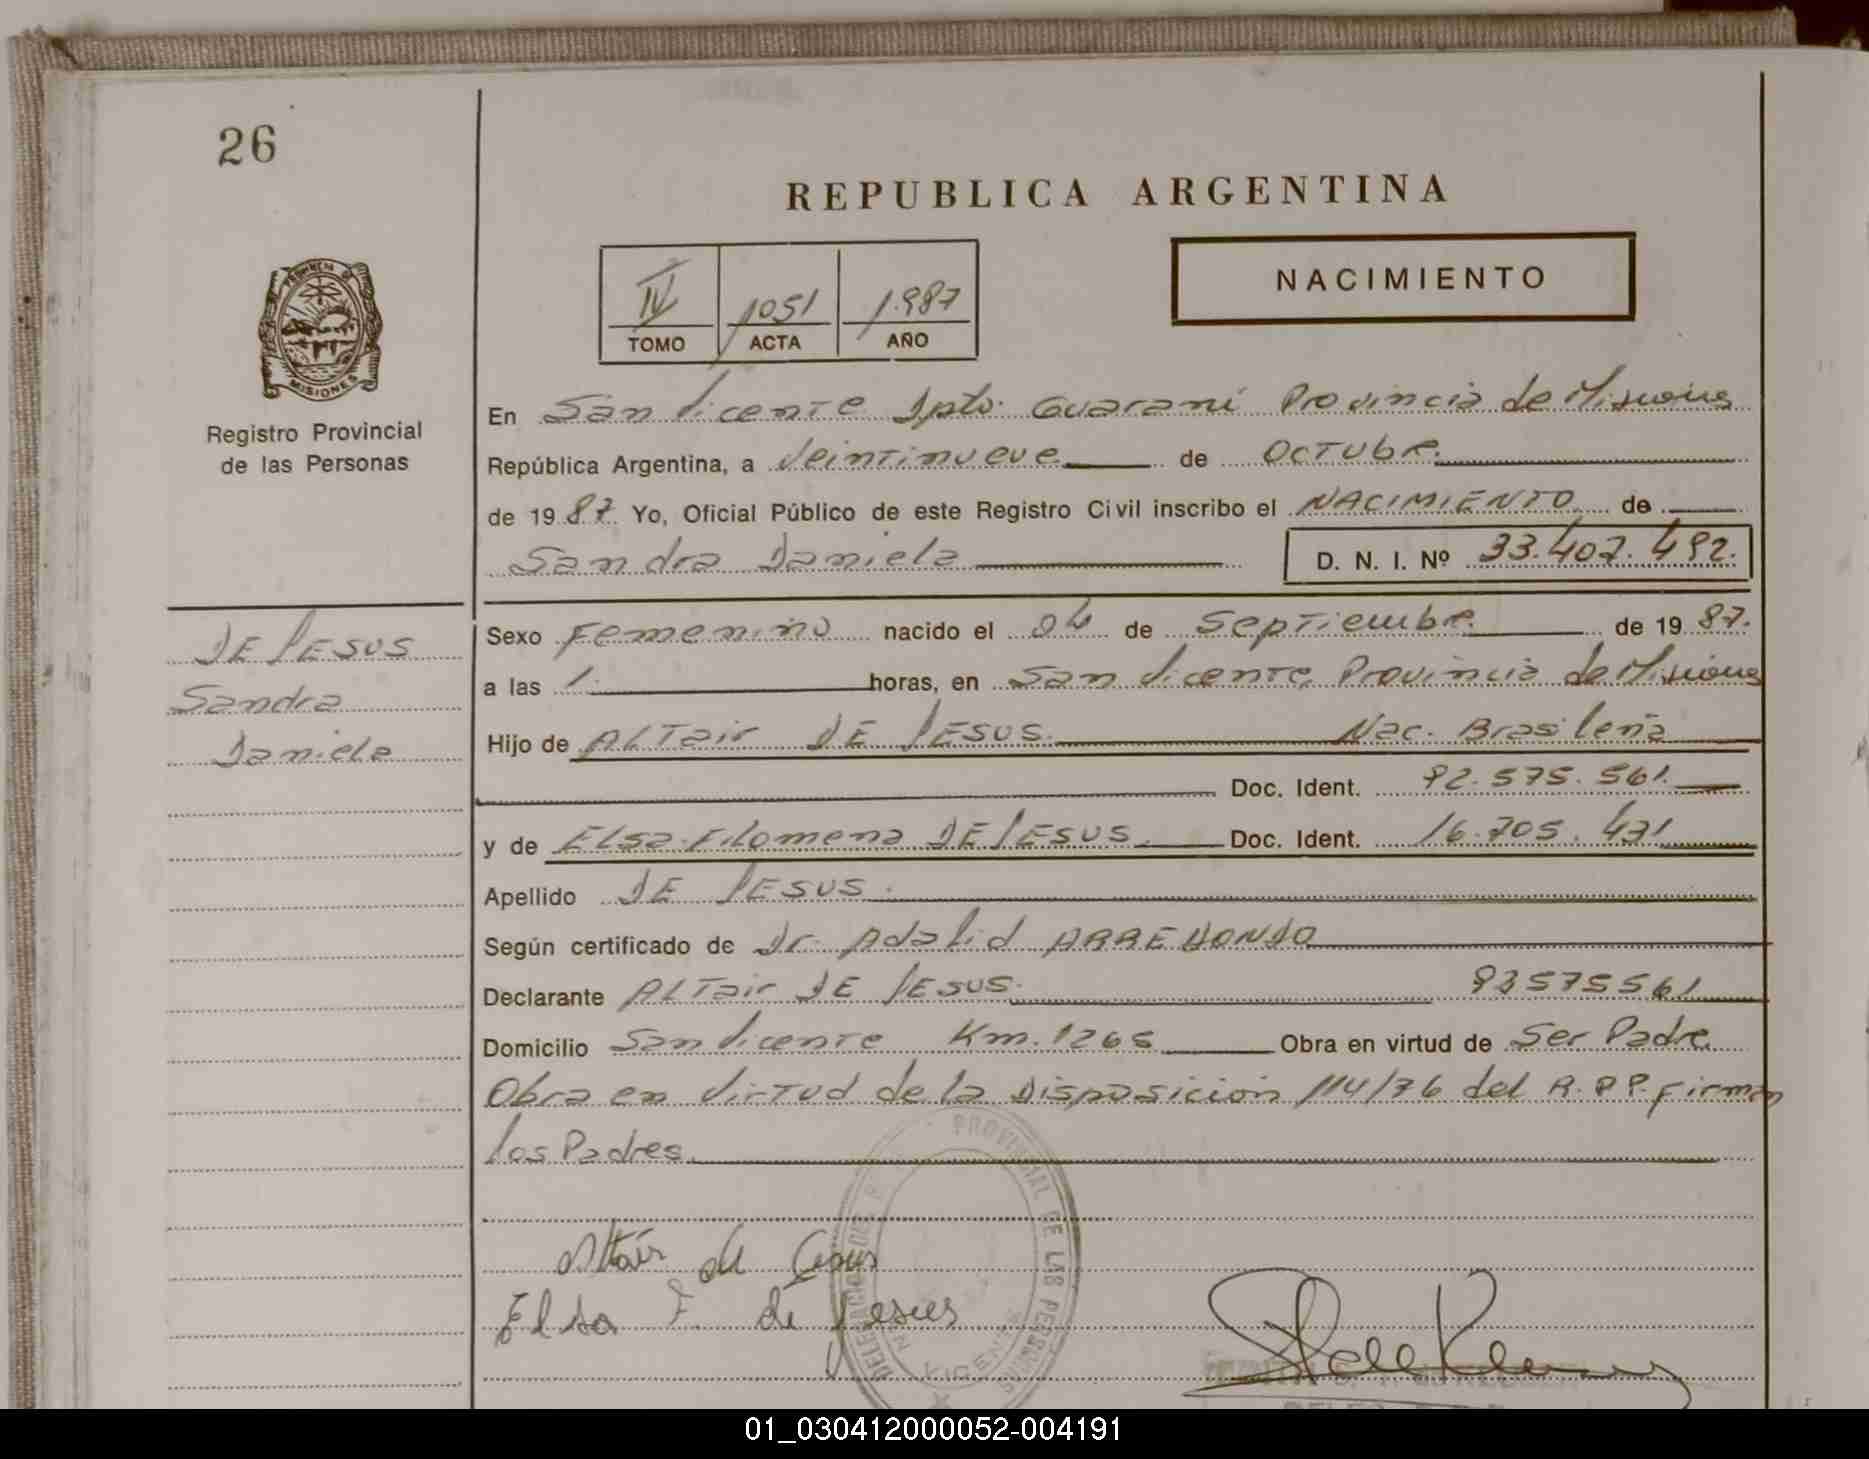 26
REPUBLICA ARGENTINA
NACIMIENTO
IV 1051 1.987
TOMO ACTA AÑO
PROVINCIA DE
MISIONES
Registro Provincial
de las Personas
En San Vicente Dpto. Guaraní Provincia de Misiones
República Argentina, a Veintinueve de Octubre
de 1987. Yo, Oficial Público de este Registro Civil inscribo el NACIMIENTO de
Sandra Daniela D. N. I. Nº 33.407.492.
DE JESUS
Sandra
Daniela
Sexo Femenino nacido el 04 de Septiembre de 1987.
a las 1. horas, en San Vicente Provincia de Misiones
Hijo de ALTair DE JESUS. Nac. Brasileña
Doc. Ident. 92.575.561.
y de ELsa Filomena DE JESUS. Doc. Ident. 16.705.431
Apellido DE JESUS.
Según certificado de Dr. Adalid ARREDONDO
Declarante ALTair DE JESUS. 93575561
Domicilio San Vicente Km. 1265 Obra en virtud de Ser Padre
Obra en Virtud de la Disposición 114/76 del R.P.P. Firman
los Padres.
PROVINCIAL DE LAS PERSONAS
VICENTE
Altair de Jesus
Elsa F. de Jesus
01_030412000052-004191